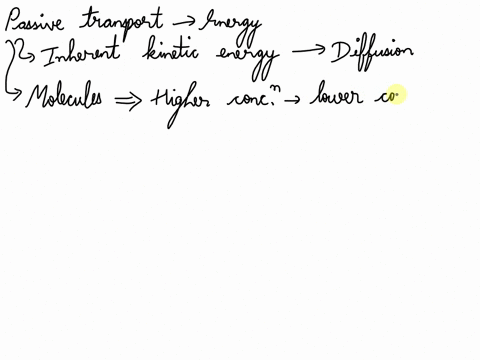 Passive transport → Energy
↳ Inherent kinetic energy → Diffusion
↳ Molecules ⇒ Higher conc.ⁿ → lower co